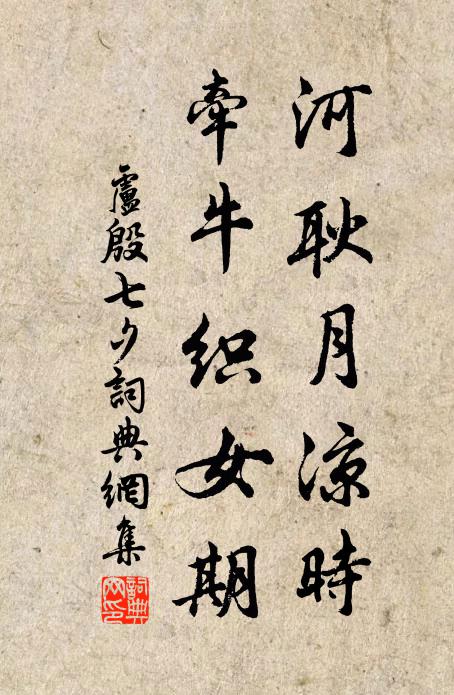 河耿月凉時
牽牛织女期
盧殷七夕詞典網集
詞典網印